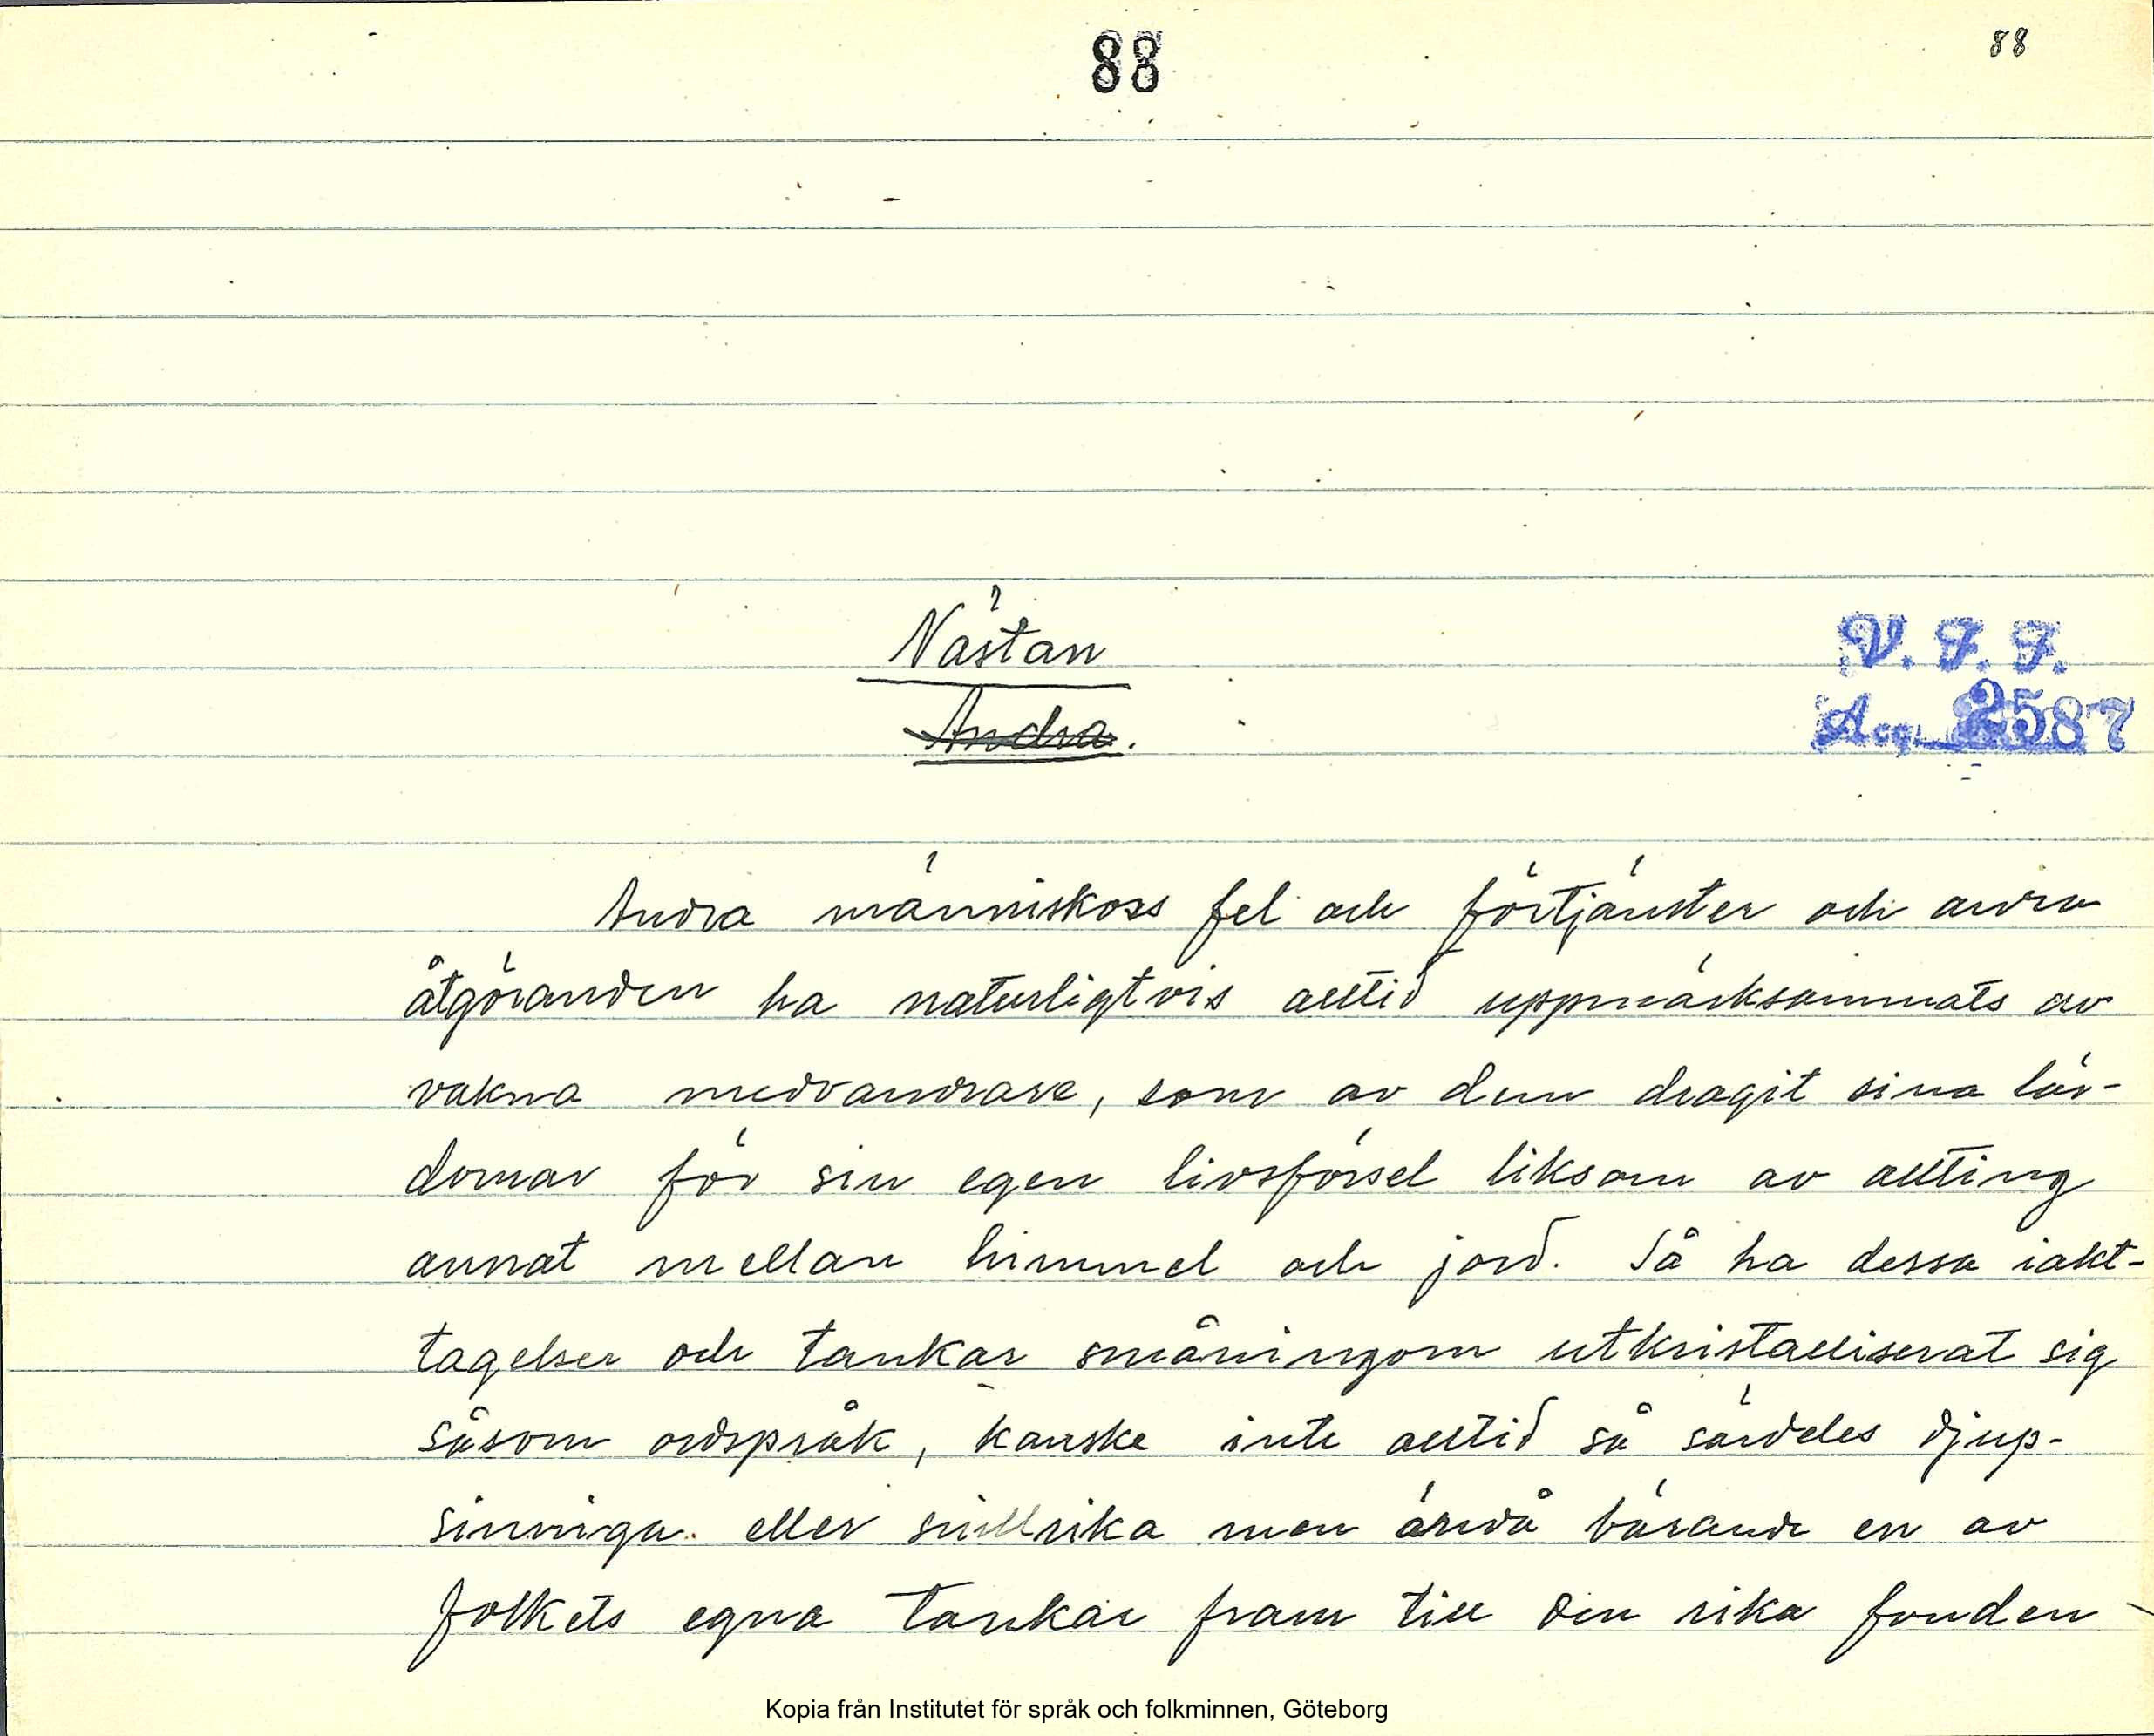 88
88
Nästan
Andra.
V. F. F.
Acc. 2587
Andra människors fel och förtjänster och andra
åtgöranden ha naturligtvis alltid uppmärksammats av
vakna medvandrare, som av dem dragit sina lär-
domar för sin egen livsförsel liksom av allting
annat mellan himmel och jord. Så ha dessa iakt-
tagelser och tankar småningom utkristalliserat sig
såsom ordspråk, kanske inte alltid så särdeles djup-
sinniga eller snillrika men ändå bärande en av
folkets egna tankar fram till den rika fonden
Kopia från Institutet för språk och folkminnen, Göteborg